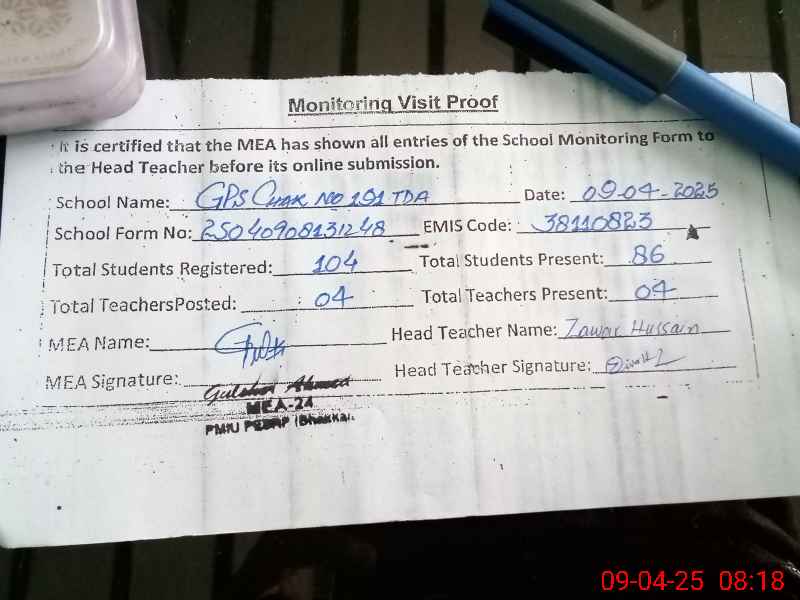 Monitoring Visit Proof
It is certified that the MEA has shown all entries of the School Monitoring Form to
the Head Teacher before its online submission.
School Name: GPS Chak No 191 TDA Date: 09-04-2025
School Form No: 25040908131248 EMIS Code: 38110823
Total Students Registered: 104 Total Students Present: 86
Total TeachersPosted: 04 Total Teachers Present: 04
MEA Name: Head Teacher Name: Zawar Hussain
MEA Signature: Head Teacher Signature:
Gulshan Ahmed
MEA-24
PMIU PESRP (Bhakkar)
09-04-25 08:18